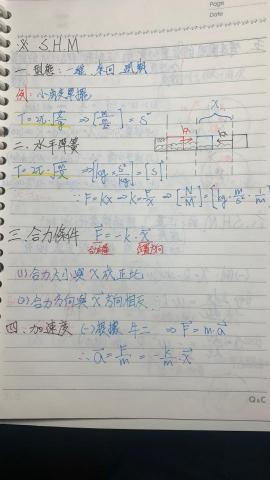 Page
Date
※ S.H.M
一. 型態: 一維 來回 週期
例: 小角度單擺
T=2π√(l/g) ⇒ [√(m/(m/s²))] = S
二. 水平彈簧
X
T=2π√(m/k) ⇒ [√(kg·s²/kg)] = [S]
∵ F=kx ⇒ k=F/x ⇒ [N/M] = [kg·m/s²·1/m]
三. 合力條件 F=-k·x
(1) 合力大小與 X 成正比
(2) 合力方向與 X 方向相反
四. 加速度 (一) 根據 牛二 ⇒ F=m·a
∴ a=F/m=-k/m·x
Q&C